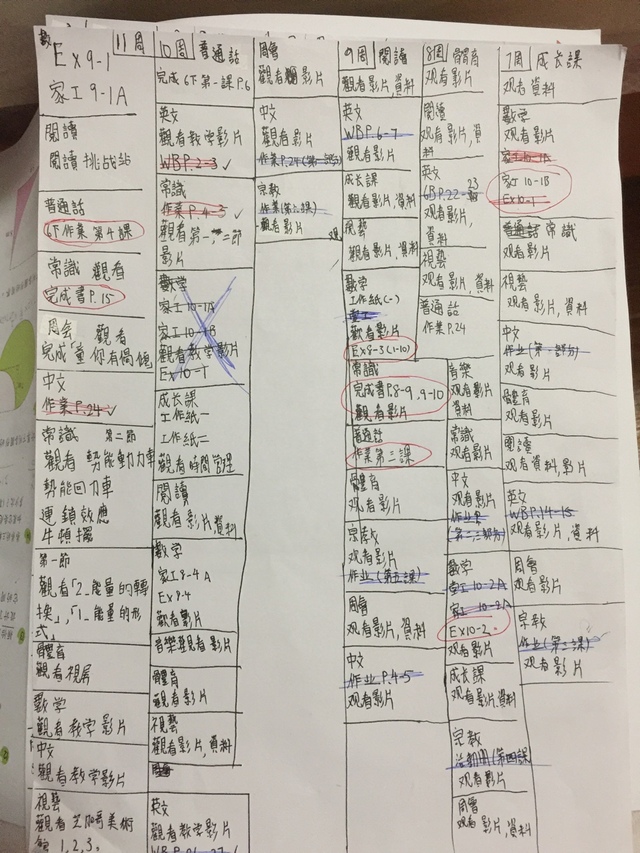 數 11周
Ex9-1
家工9-1A
閱讀
閱讀挑战站
普通話
6下作業第4課
常識 觀看
完成書P.15
周会 觀看
中文
作業P.24
常識 第二節
觀看 勢能動力車
勢能回力車
連鎖效應
牛頓擺
第一節
觀看「2.能量的轉
換」,「1.能量的形
式」
體育
觀看視屏
數学
觀看教学影片
中文
觀看教学影片
視藝
觀看芝加哥美術
館1,2,3。
10周 普通話
完成6下第一課P.6
英文
觀看教学影片
WBP.2-3
常識
作業P.4-3
觀看第一,二節
影片
數学
家工10-1A
家工10-1B
觀看教学影片
Ex10-1
成长課
工作紙一
工作紙二
觀看時間管理
閱讀
觀看影片資料
數学
家工8-4A
Ex8-4
觀看影片
音樂觀看影片
體育
觀看影片
視藝
觀看影片,資料
周會
英文
觀看教学影片
周會
觀看影片
中文
觀看影片
作業P.24(第一部分)
宗教
作業(第六課)
觀看影片
觀
9周 閱讀
觀看影片,資料
英文
WBP.6-7
觀看影片
成长課
觀看影片,資料
視藝
觀看影片,資料
數学
工作紙(一)
觀看影片
Ex8-3(1-10)
常識
完成書P.8-9,9-10
觀看影片
普通話
作業第三課
體育
观看影片
宗教
观看影片
作业(第五課)
周會
观看影片,資料
中文
作业P.4-5
观看影片
8周 體育
观看影片
閱讀
观看影片,資
料
英文
WBP.22-23
观看影片,
資料
視藝
观看影片,資料
普通話
作業P.24
音樂
观看影片
資料
常識
观看影片
中文
观看影片
(第二,三部分)
數学
家工10-2A
Ex10-2
观看影片
成长課
观看影片,資料
宗教
活動册(第四課
观看影片
周會
观看影片,資料
7周 成长課
观看資料
數学
观看影片
家工10-1A
家工10-1B
Ex10-1
常識
观看影片
視藝
观看影片,資料
中文
作业(第一部分)
观看影片
體育
观看影片
閱讀
观看資料,影片
英文
WBP.14-15
观看影片,資料
周會
观看影片
宗教
作业(第三課)
观看影片